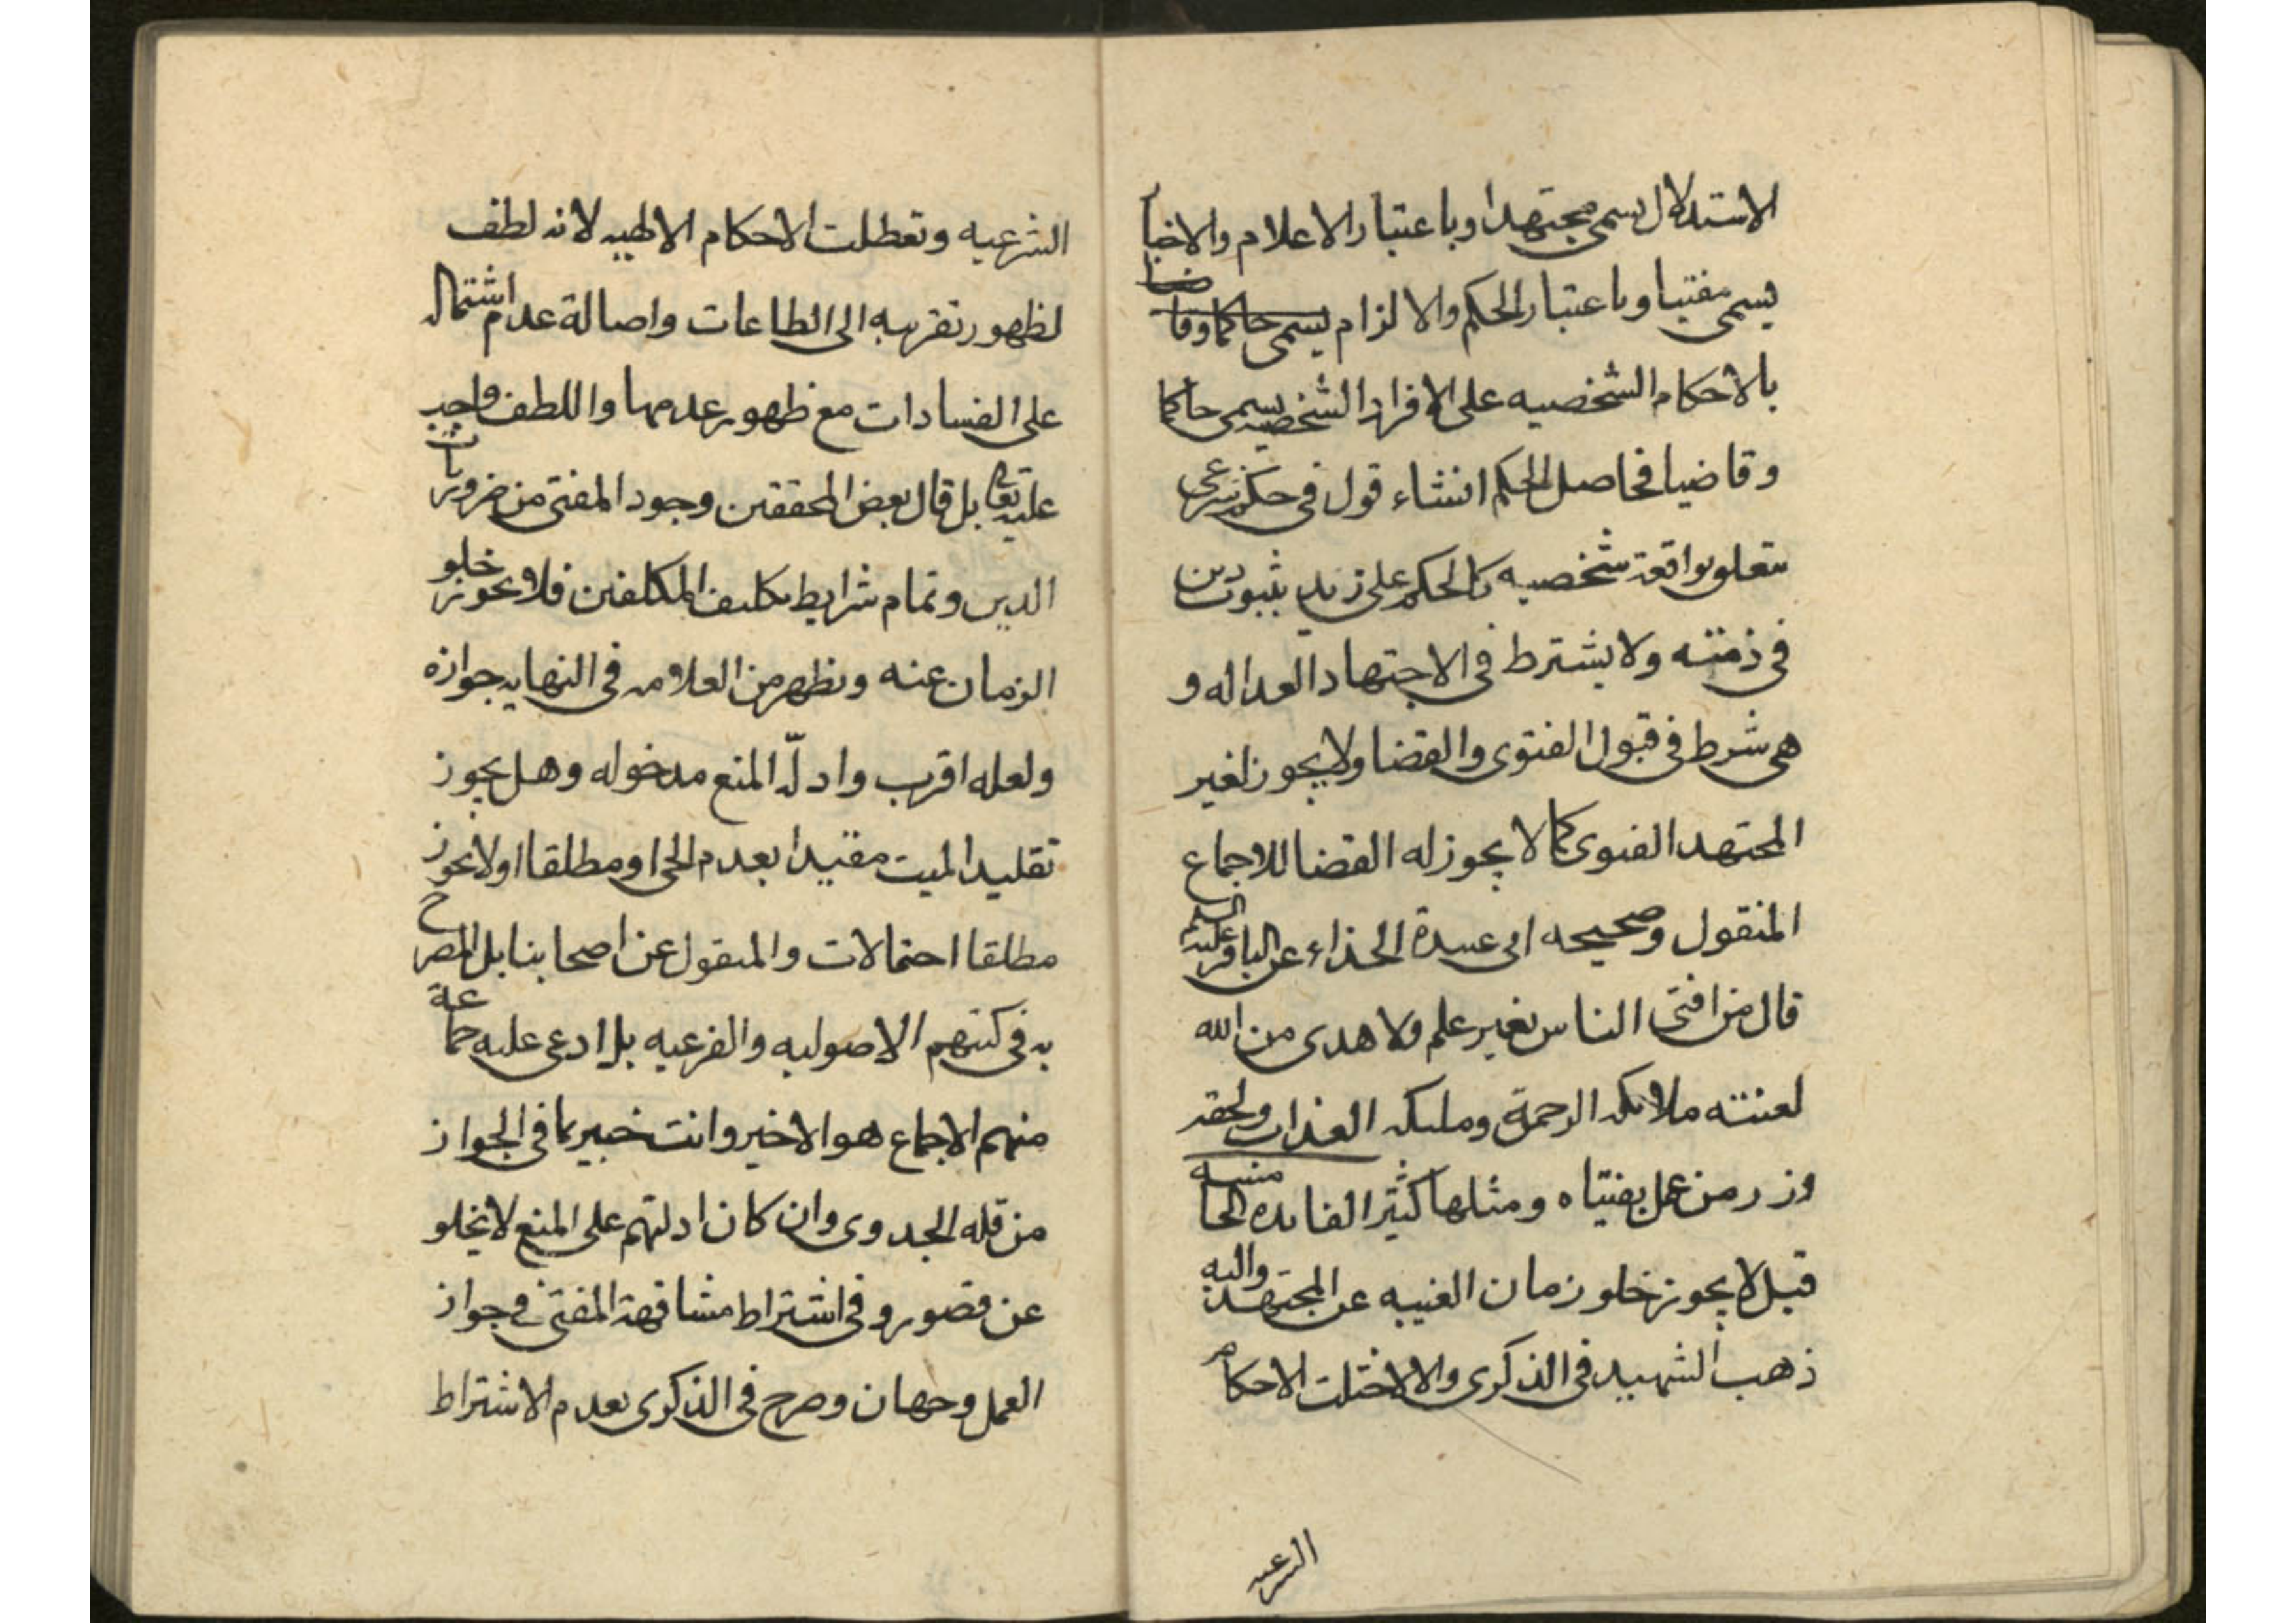 الاستدلال يسمى مجتهدا وباعتبار الاعلام والاخبا
يسمى مفتيا وباعتبار الحكم والالزام يسمى حاكما وقا
ضيا
بالاحكام الشخصيه على الافراد الشخصيه يسمى حاكما
وقاضيا فحاصل الحكم انشاء قول في حكم شرعى
يتعلق بواقعة شخصيه كالحكم على زيد بثبوت دين
في ذمته ولا يشترط في الاجتهاد العداله و
هي شرط في قبول الفتوى والقضا ولا يجوز لغير
المجتهد الفتوى كما لا يجوز له القضا للاجماع
المنقول وصحيحه ابى عبيدة الحذاء عن الباقر عليه السلم
قال من افتى الناس بغير علم ولا هدى من الله
لعنته ملائكه الرحمة وملئكه العذاب ولحقه
وزر من عمل بفتياه ومثلها كثير الفايده الخا
مسه
قيل لا يجوز خلو زمان الغيبه عن المجتهد واليه
ذهب الشهيد في الذكرى والا لاختلت الاحكام
الشرعيه
الشرعيه وتعطلت الاحكام الالهيه لانه لطف
لظهور تقريبه الى الطاعات واصالة عدم اشتماله
على الفسادات مع ظهور عدمها واللطف واجب
عليه تعالى بل قال بعض المحققين وجود المفتى من ضروريات
الدين وتمام شرايط تكليف المكلفين فلا يجوز خلو
الزمان عنه ويظهر من العلامه في النهايه جوازه
ولعله اقرب وادلّه المنع مدخوله وهل يجوز
تقليد الميت مقيدا بعدم الحى او مطلقا او لا يجوز
مطلقا احتمالات والمنقول عن اصحابنا بل المصرح
به في كتبهم الاصوليه والفرعيه بل ادعى عليه جماعة
منهم الاجماع هو الاخير وانت خبير بما في الجواز
من قله الجدوى وان كان ادلتهم على المنع لا يخلو
عن قصور وفي اشتراط مشافهة المفتى في جواز
العمل وجهان وصرح في الذكرى بعدم الاشتراط